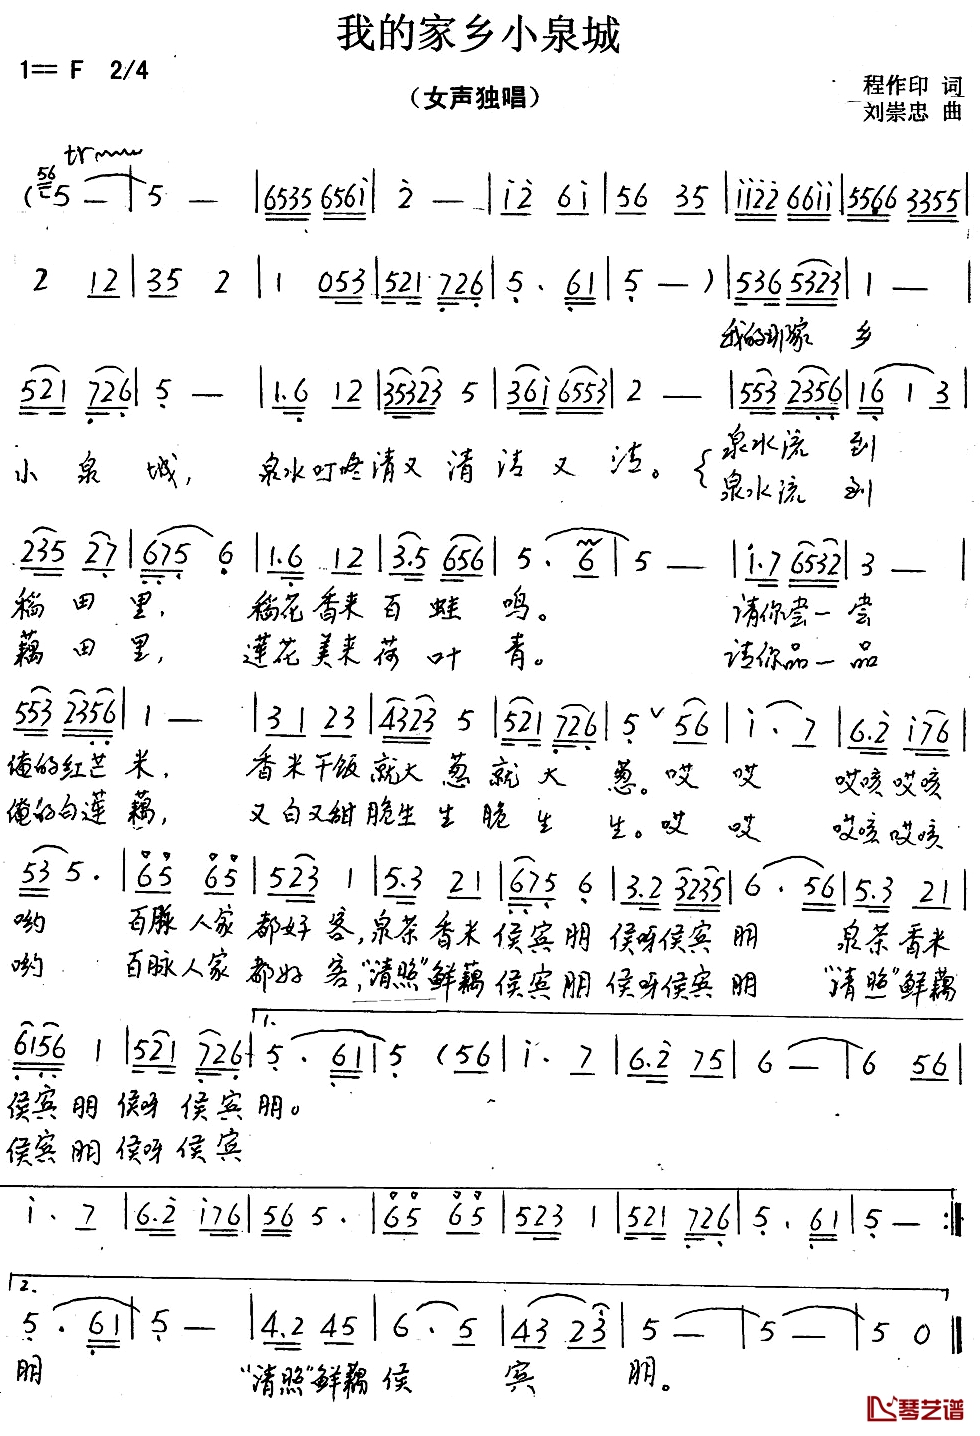 我的家乡小泉城
1== F 2/4
（女声独唱）
程作印 词
刘崇忠 曲
tr
56
( 5 — | 5 — | 6535 656i | 2 — | i2 6i | 56 35 | ii22 66ii | 5566 3355 |
2 12 | 35 2 | 1 053 | 521 726 | 5 . 61 | 5 — ) | 536 5323 | 1 — |
我的那家 乡
521 726 | 5 — | 1.6 12 | 35323 5 | 36i 6553 | 2 — | 553 2356 | 16 1 3 |
小 泉 城, 泉水叮咚清又 清 洁 又 洁。 { 泉水流 到
泉水流 到
235 27 | 675 6 | 1.6 12 | 3.5 656 | 5 . 6 | 5 — | i.7 6532 | 3 — |
稻 田 里, 稻花香来百 蛙 鸣。 请你尝一尝
藕 田 里, 莲花美来荷 叶 青。 请你品一品
553 2356 | 1 — | 31 23 | 4323 5 | 521 726 | 5 ∨ 56 | i . 7 | 6.2 i76 |
俺的红芒 米, 香米干饭就大 葱 就 大 葱。哎 哎 哎咳哎咳
俺的白莲 藕, 又白又甜脆生 生 脆 生 生。哎 哎 哎咳哎咳
53 5. | 65 65 | 523 1 | 5.3 21 | 675 6 | 3.2 3235 | 6 . 56 | 5.3 21 |
哟 百脉人家 都好 客,泉茶香米 侯宾 朋 侯呀侯宾 朋 泉茶香米
哟 百脉人家 都好 客,“清照”鲜藕 侯宾 朋 侯呀侯宾 朋 “清照”鲜藕
6156 1 | 521 726 | 1. 5 . 61 | 5 (56 | i . 7 | 6.2 75 | 6 — | 6 56 |
侯宾 朋 侯呀 侯宾 朋。
侯宾 朋 侯呀 侯宾
i . 7 | 6.2 i76 | 56 5. | 65 65 | 523 1 | 521 726 | 5 . 61 | 5 — :‖
2.
5 . 61 | 5 — | 4.2 45 | 6 . 5 | 43 23 | 5 — | 5 — | 5 0 ‖
朋 “清照”鲜藕 侯 宾 朋。
琴艺谱